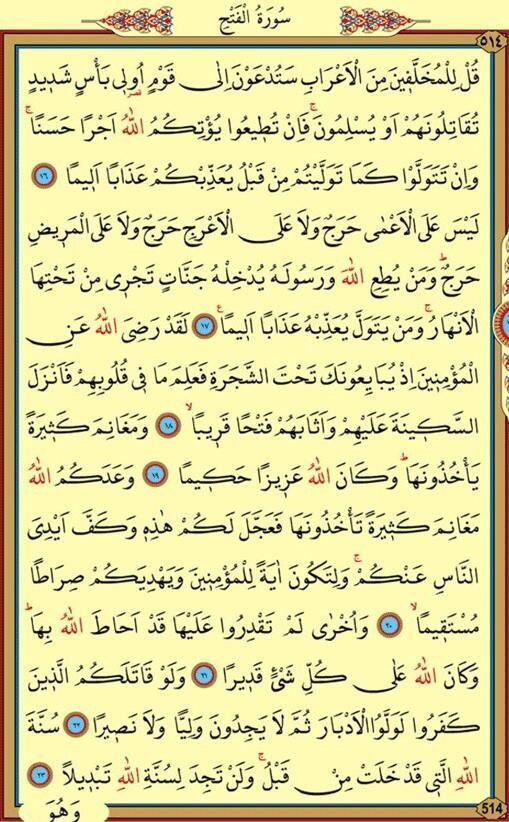 سُورَةُ الْفَتْحِ
٥١٤
قُلْ لِلْمُخَلَّف۪ينَ مِنَ الْاَعْرَابِ سَتُدْعَوْنَ اِلٰى قَوْمٍ اُو۬ل۪ي بَأْسٍ شَد۪يدٍ
تُقَاتِلُونَهُمْ اَوْ يُسْلِمُونَۚ فَاِنْ تُط۪يعُوا يُؤْتِكُمُ اللّٰهُ اَجْرًا حَسَنًاۚ
وَاِنْ تَتَوَلَّوْا كَمَا تَوَلَّيْتُمْ مِنْ قَبْلُ يُعَذِّبْكُمْ عَذَابًا اَل۪يمًا ﴿١٦﴾
لَيْسَ عَلَى الْاَعْمٰى حَرَجٌ وَلَا عَلَى الْاَعْرَجِ حَرَجٌ وَلَا عَلَى الْمَر۪يضِ
حَرَجٌۜ وَمَنْ يُطِعِ اللّٰهَ وَرَسُولَهُ يُدْخِلْهُ جَنَّاتٍ تَجْر۪ي مِنْ تَحْتِهَا
الْاَنْهَارُۚ وَمَنْ يَتَوَلَّ يُعَذِّبْهُ عَذَابًا اَل۪يمًا۟ ﴿١٧﴾ لَقَدْ رَضِيَ اللّٰهُ عَنِ
الْمُؤْمِن۪ينَ اِذْ يُبَايِعُونَكَ تَحْتَ الشَّجَرَةِ فَعَلِمَ مَا ف۪ي قُلُوبِهِمْ فَاَنْزَلَ
السَّك۪ينَةَ عَلَيْهِمْ وَاَثَابَهُمْ فَتْحًا قَر۪يبًاۙ ﴿١٨﴾ وَمَغَانِمَ كَث۪يرَةً
يَأْخُذُونَهَاۜ وَكَانَ اللّٰهُ عَز۪يزًا حَك۪يمًا ﴿١٩﴾ وَعَدَكُمُ اللّٰهُ
مَغَانِمَ كَث۪يرَةً تَأْخُذُونَهَا فَعَجَّلَ لَكُمْ هٰذِه۪ وَكَفَّ اَيْدِيَ
النَّاسِ عَنْكُمْۚ وَلِتَكُونَ اٰيَةً لِلْمُؤْمِن۪ينَ وَيَهْدِيَكُمْ صِرَاطًا
مُسْتَق۪يمًاۙ ﴿٢٠﴾ وَاُخْرٰى لَمْ تَقْدِرُوا عَلَيْهَا قَدْ اَحَاطَ اللّٰهُ بِهَاۜ
وَكَانَ اللّٰهُ عَلٰى كُلِّ شَيْءٍ قَد۪يرًا ﴿٢١﴾ وَلَوْ قَاتَلَكُمُ الَّذ۪ينَ
كَفَرُوا لَوَلَّوُا الْاَدْبَارَ ثُمَّ لَا يَجِدُونَ وَلِيًّا وَلَا نَص۪يرًا ﴿٢٢﴾ سُنَّةَ
اللّٰهِ الَّت۪ي قَدْ خَلَتْ مِنْ قَبْلُۚ وَلَنْ تَجِدَ لِسُنَّةِ اللّٰهِ تَبْد۪يلًا ﴿٢٣﴾
514
وَهُوَ